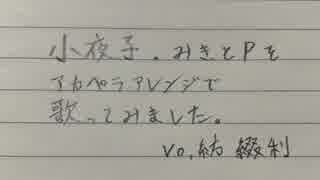 小夜子.みきとPを
アカペラアレンジで
歌ってみました。
vo.結 綴利